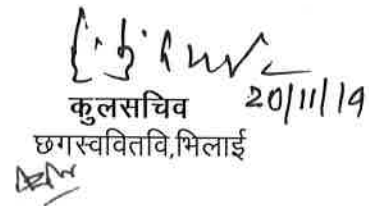 कुलसचिव 20/11/19
छगस्ववितवि,भिलाई